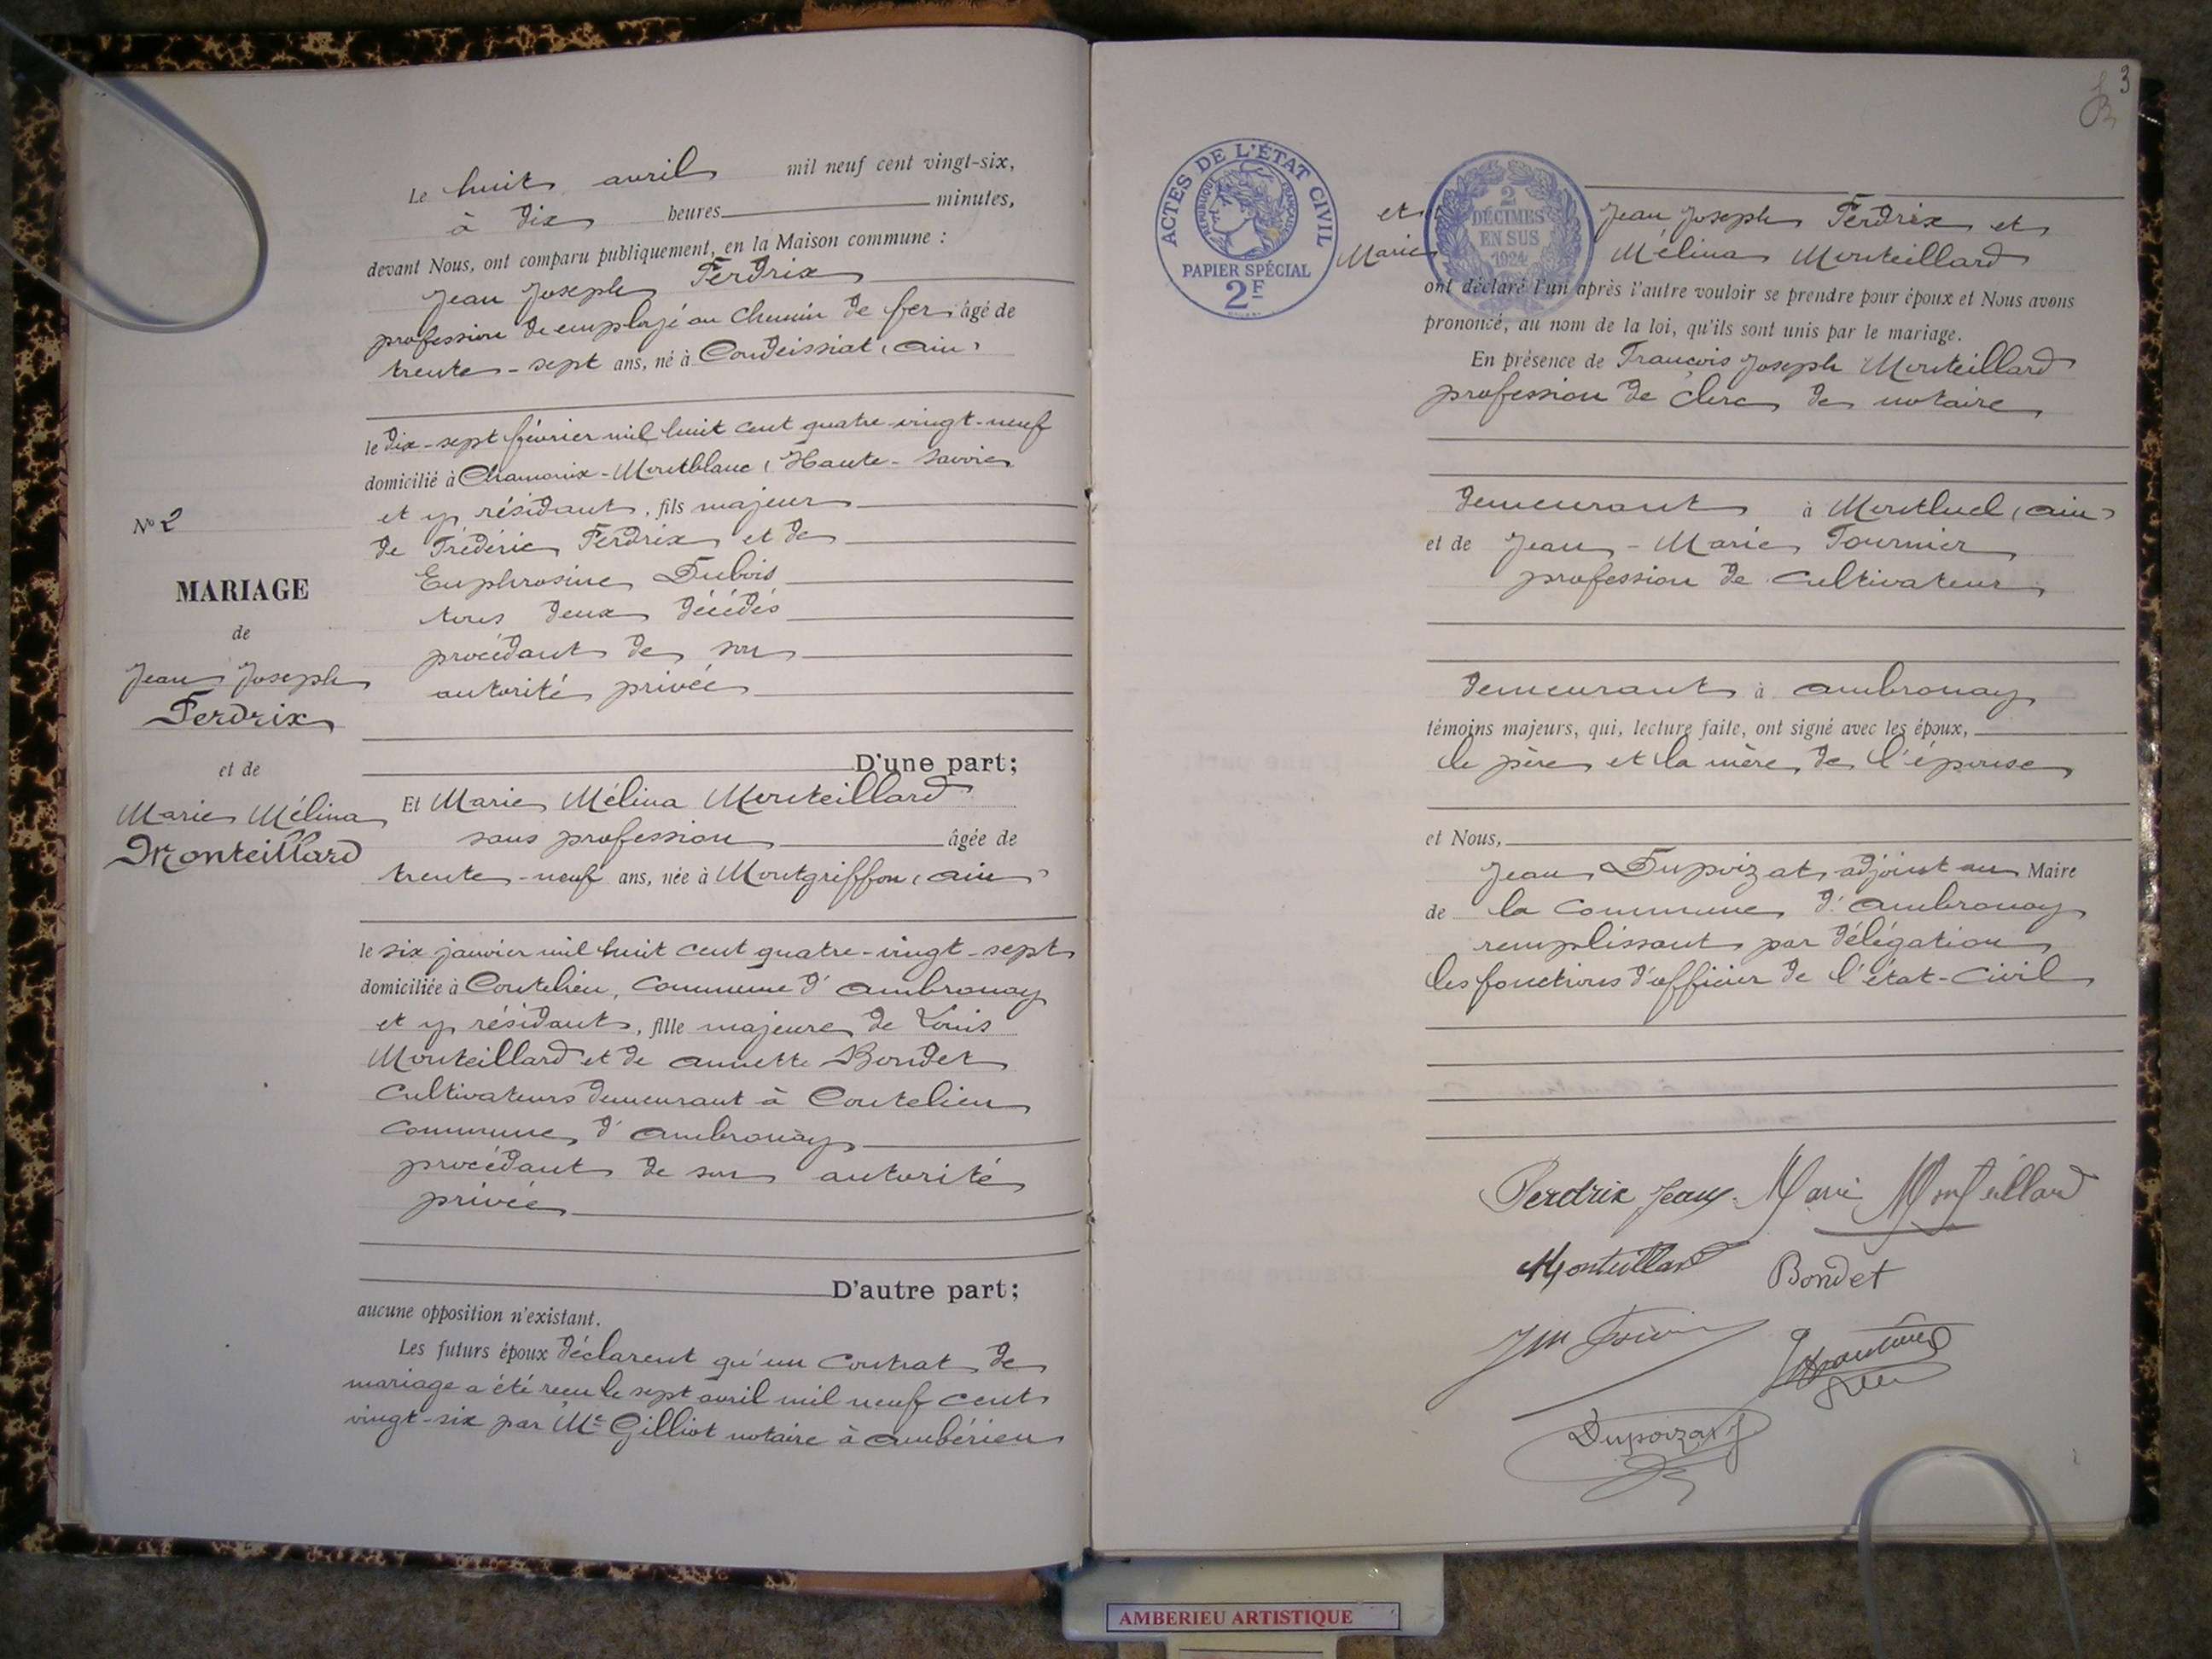 Le huit avril mil neuf cent vingt-six,
à dix heures minutes,
devant Nous, ont comparu publiquement, en la Maison commune :
Jean Joseph Perdrix
profession de employé au Chemin de fer, âgé de
trente-sept ans, né à Condeissiat (Ain)
le dix-sept février mil huit cent quatre-vingt-neuf
domicilié à Chamonix-Montblanc (Haute-Savoie
et y résidant, fils majeur
de Frédéric Perdrix et de
Euphrosine Dubois
tous deux décédés
procédant de son
autorité privée
D'une part;
Et Marie Mélina Monteillard
sans profession âgée de
trente-neuf ans, née à Montgriffon (Ain)
le six janvier mil huit cent quatre-vingt-sept
domiciliée à Coutelieu, Commune d'Ambronay
et y résidant, fille majeure de Louis
Monteillard et de Annette Bondet
Cultivateurs demeurant à Coutelieu
Commune d'Ambronay
procédant de son autorité
privée
D'autre part;
aucune opposition n'existant.
Les futurs époux déclarent qu'un contrat de
mariage a été reçu le sept avril mil neuf cent
vingt-six par Me Gilliot notaire à Ambérieu
N° 2
MARIAGE
de
Jean Joseph
Perdrix
et de
Marie Mélina
Monteillard
3
ACTES DE L'ÉTAT CIVIL
RÉPUBLIQUE FRANÇAISE
PAPIER SPÉCIAL
2F
2
DÉCIMES
EN SUS
1924
et Jean Joseph Perdrix et
Marie Mélina Monteillard
ont déclaré l'un après l'autre vouloir se prendre pour époux et Nous avons
prononcé, au nom de la loi, qu'ils sont unis par le mariage.
En présence de François Joseph Monteillard
profession de clerc de notaire
demeurant à Montluel (Ain)
et de Jean-Marie Fournier
profession de cultivateur
demeurant à Ambronay
témoins majeurs, qui, lecture faite, ont signé avec les époux,
le père et la mère de l'épouse
et Nous,
Jean Dupoizat, adjoint au Maire
de la Commune d'Ambronay
remplissant par délégation
les fonctions d'officier de l'état-Civil
Perdrix Jean Marie Monteillard
Monteillard Bondet
Dupoizat
AMBERIEU ARTISTIQUE